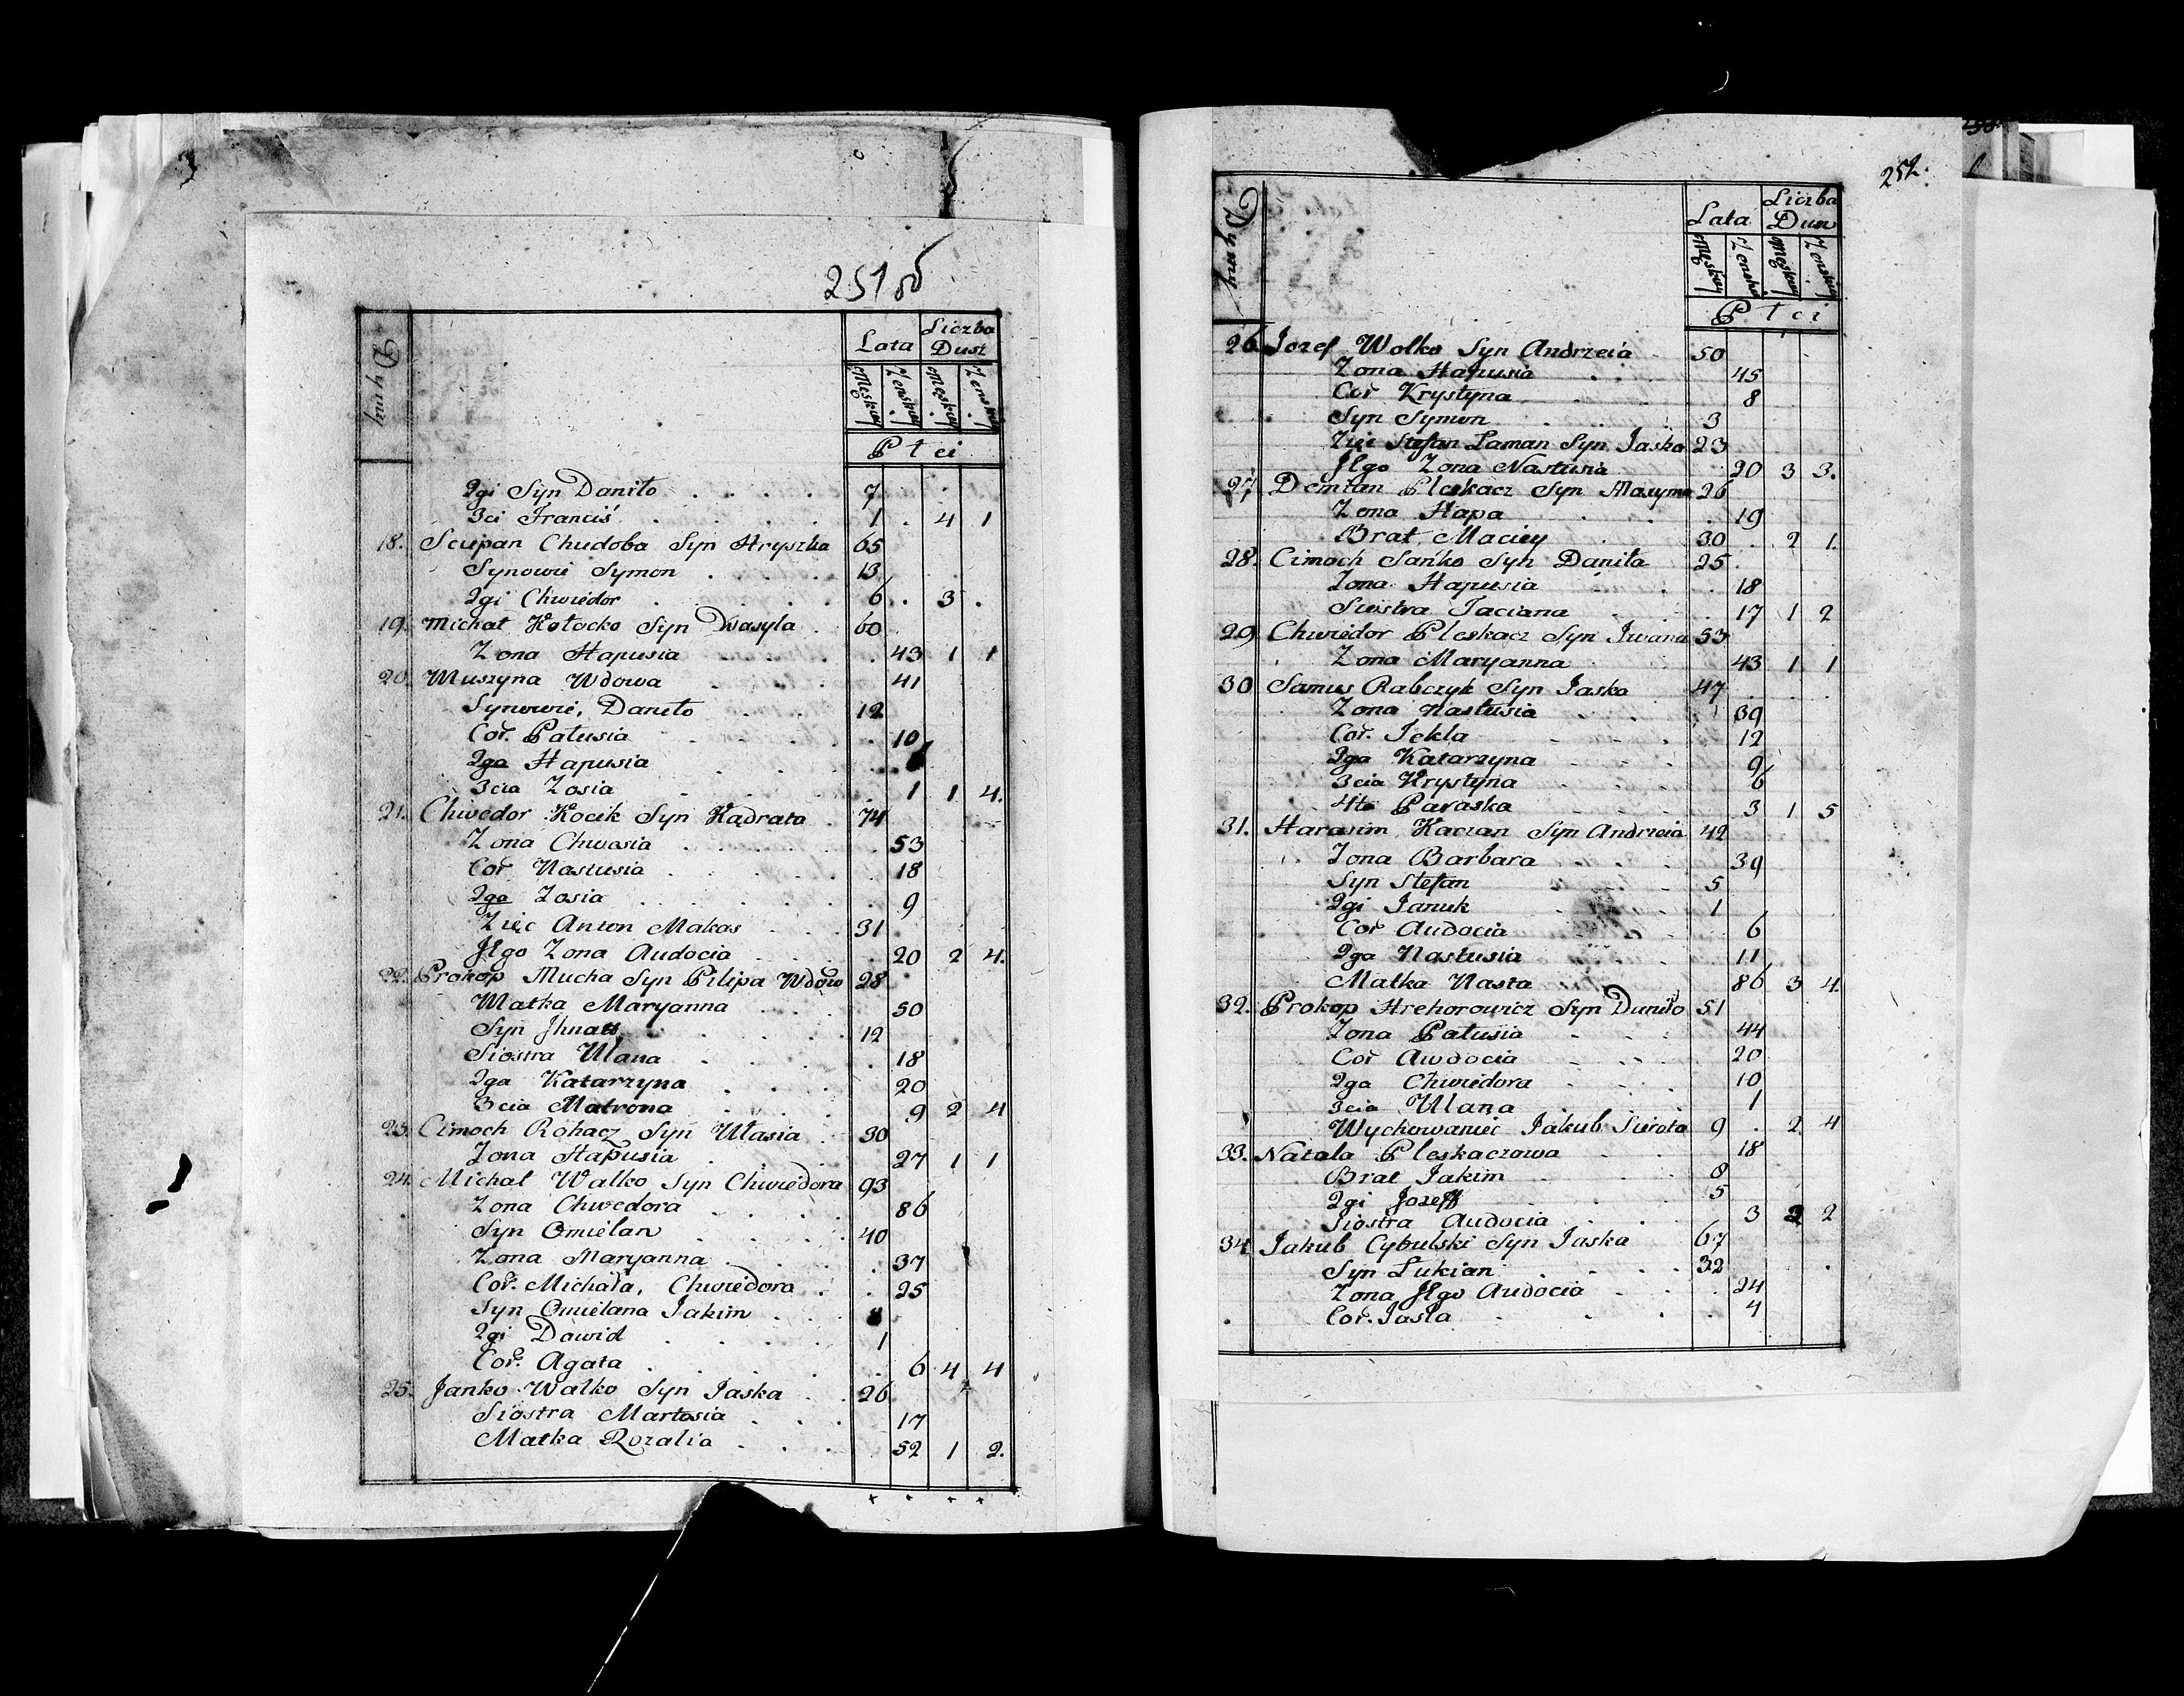 251 об
Dymy
Lata
Liczba Dusz
Męskiey
Zenskiey
Męskiey
Zenskiey
Płci
2gi Syn Daniło 7
3ci Franciś 1 4 1
18. Sciepan Chudoba Syn Hryszka 65
Synowie Symon 13
2gi Chwiedor 6 3
19. Michał Kołocko Syn Wasyla 60
Zona Hapusia 43 1 1
20. Muszyna Wdowa 41
Synowie, Daniło 12
Cor. Patusia 10
2ga Hapusia
3cia Zosia 1 1 4.
21. Chwedor Kocik Syn Kądrata 74
Zona Chwasia 53
Cor Nastusia 18
2ga Zosia 9
Zięc Anton Makas 31
JIgo Zona Audocia 20 2 4.
22. Prokop Mucha Syn Pilipa Wdow 28
Matka Maryanna 50
Syn Jhnat 12
Siostra Ulana 18
2ga Katarzyna 20
3cia Matrona 9 2 4
23. Cimoch Rohacz Syn Ułasia 30
Zona Hapusia 27 1 1
24. Michał Walko Syn Chwiedora 93
Zona Chwedora 86
Syn Omielan 40
Zona Maryanna 37
Cor. Michała, Chwiedora 25
Syn Omielana Jakim
2gi Dawid 1
Cor. Agata 6 4 4
25. Janko Walko Syn Jaska 26
Siostra Martosia 17
Matka Rozalia 52 1 2.
252.
Dymy
Lata
Liczba Dusz
Męskiey
Zenskiey
Męskiey
Zenskiey
Płci
26 Jozef Wolko Syn Andrzeia 50
Zona Hapusia 45
Cor Krystyna 8
Syn Symon 3
Zięc Stefan Laman Syn Jaska 23
JIgo Zona Nastusia 20 3 3.
27. Demian Pleskacz Syn Maxyma 26
Zona Hapa 19
Brat Maciey 30 2 1.
28. Cimoch Sańko Syn Daniła 25
Zona Hapusia 18
Siostra Taciana 17 1 2
29 Chwiedor Pleskacz Syn Jwana 53
Zona Maryanna 43 1 1
30 Samus Rabczyk Syn Jaska 47
Zona Nastusia 39
Cor. Tekla 12
2ga Katarzyna 9
3cia Krystyna 6
4ta Paraska 3 1 5
31. Harasim Kaczan Syn Andrzeia 42
Zona Barbara 39
Syn Stefan 5
2gi Januk 1
Cor Audocia 6
2ga Nastusia 11
Matka Nasta 86 3 4.
32. Prokop Hrehorowicz Syn Daniło 51
Zona Patusia 44
Cor Awdocia 20
2ga Chwiedora 10
3cia Ulana 1
Wychowaniec Jakub Sierota 9 2 4
33. Natala Pleskaczowa 18
Brat Jakim 8
2gi Jozeff 5
Siostra Audocia 3 2 2
34 Jakub Cybulski Syn Jaska 67
Syn Lukian 32
Zona JIgo Audocia 24
Cor. Jasia 4